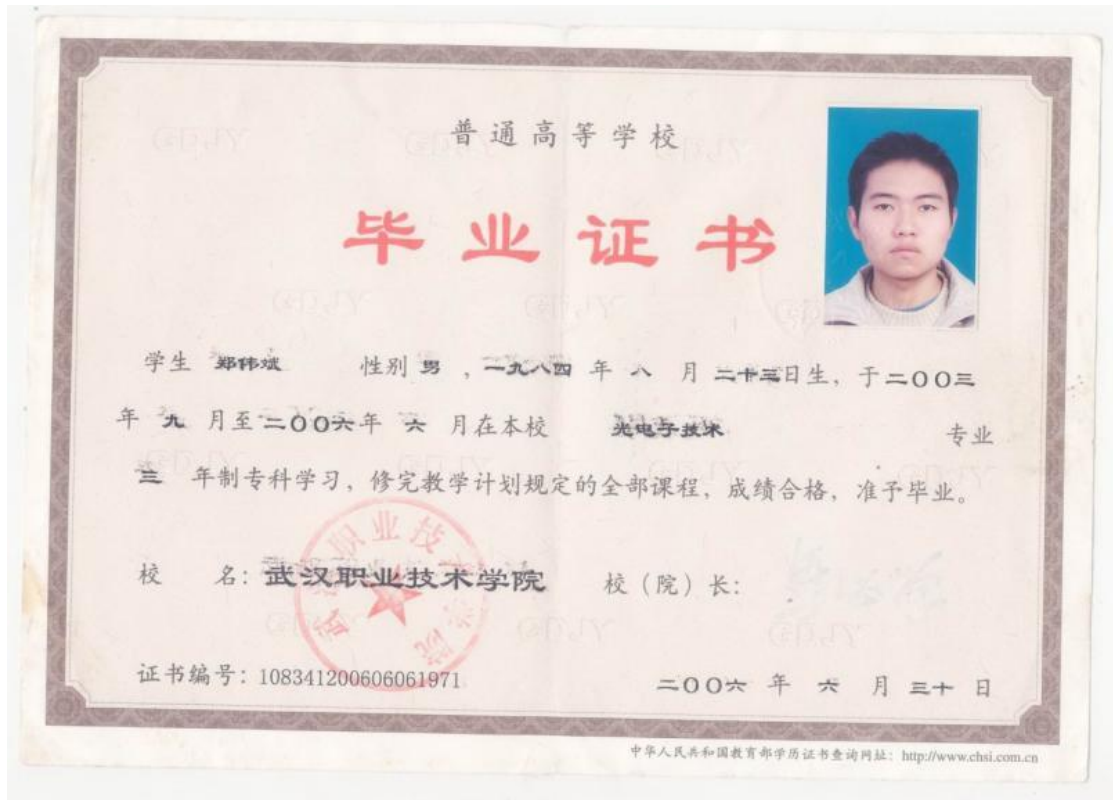 普通高等学校
毕业证书
学生 郑伟斌 性别 男 ，一九八四 年 八 月 二十三日生，于二〇〇三
年 九 月至二〇〇六年 六 月在本校 光电子技术 专业
三 年制专科学习，修完教学计划规定的全部课程，成绩合格，准予毕业。
校 名：武汉职业技术学院 校（院）长：
证书编号：108341200606061971 二〇〇六 年 六 月 三十 日
中华人民共和国教育部学历证书查询网址：http://www.chsi.com.cn
武汉职业技术学院